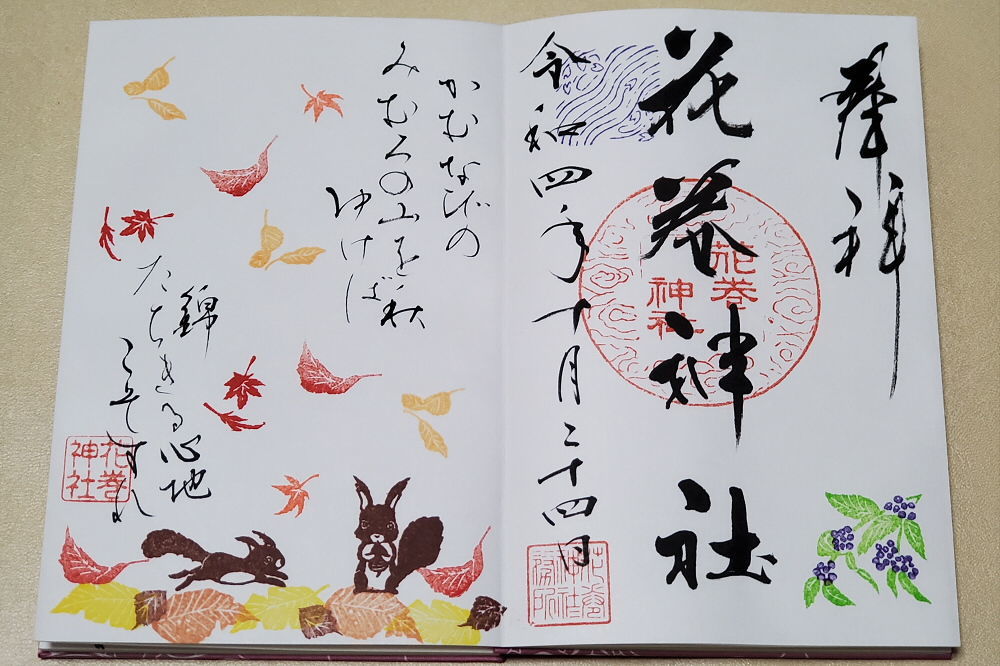 奉拝
花巻神社
花巻
神社
令和四年十月二十四日
かむなびの
みむろの山を秋
ゆけば
錦
たちきる心地
こそすれ
花巻
神社